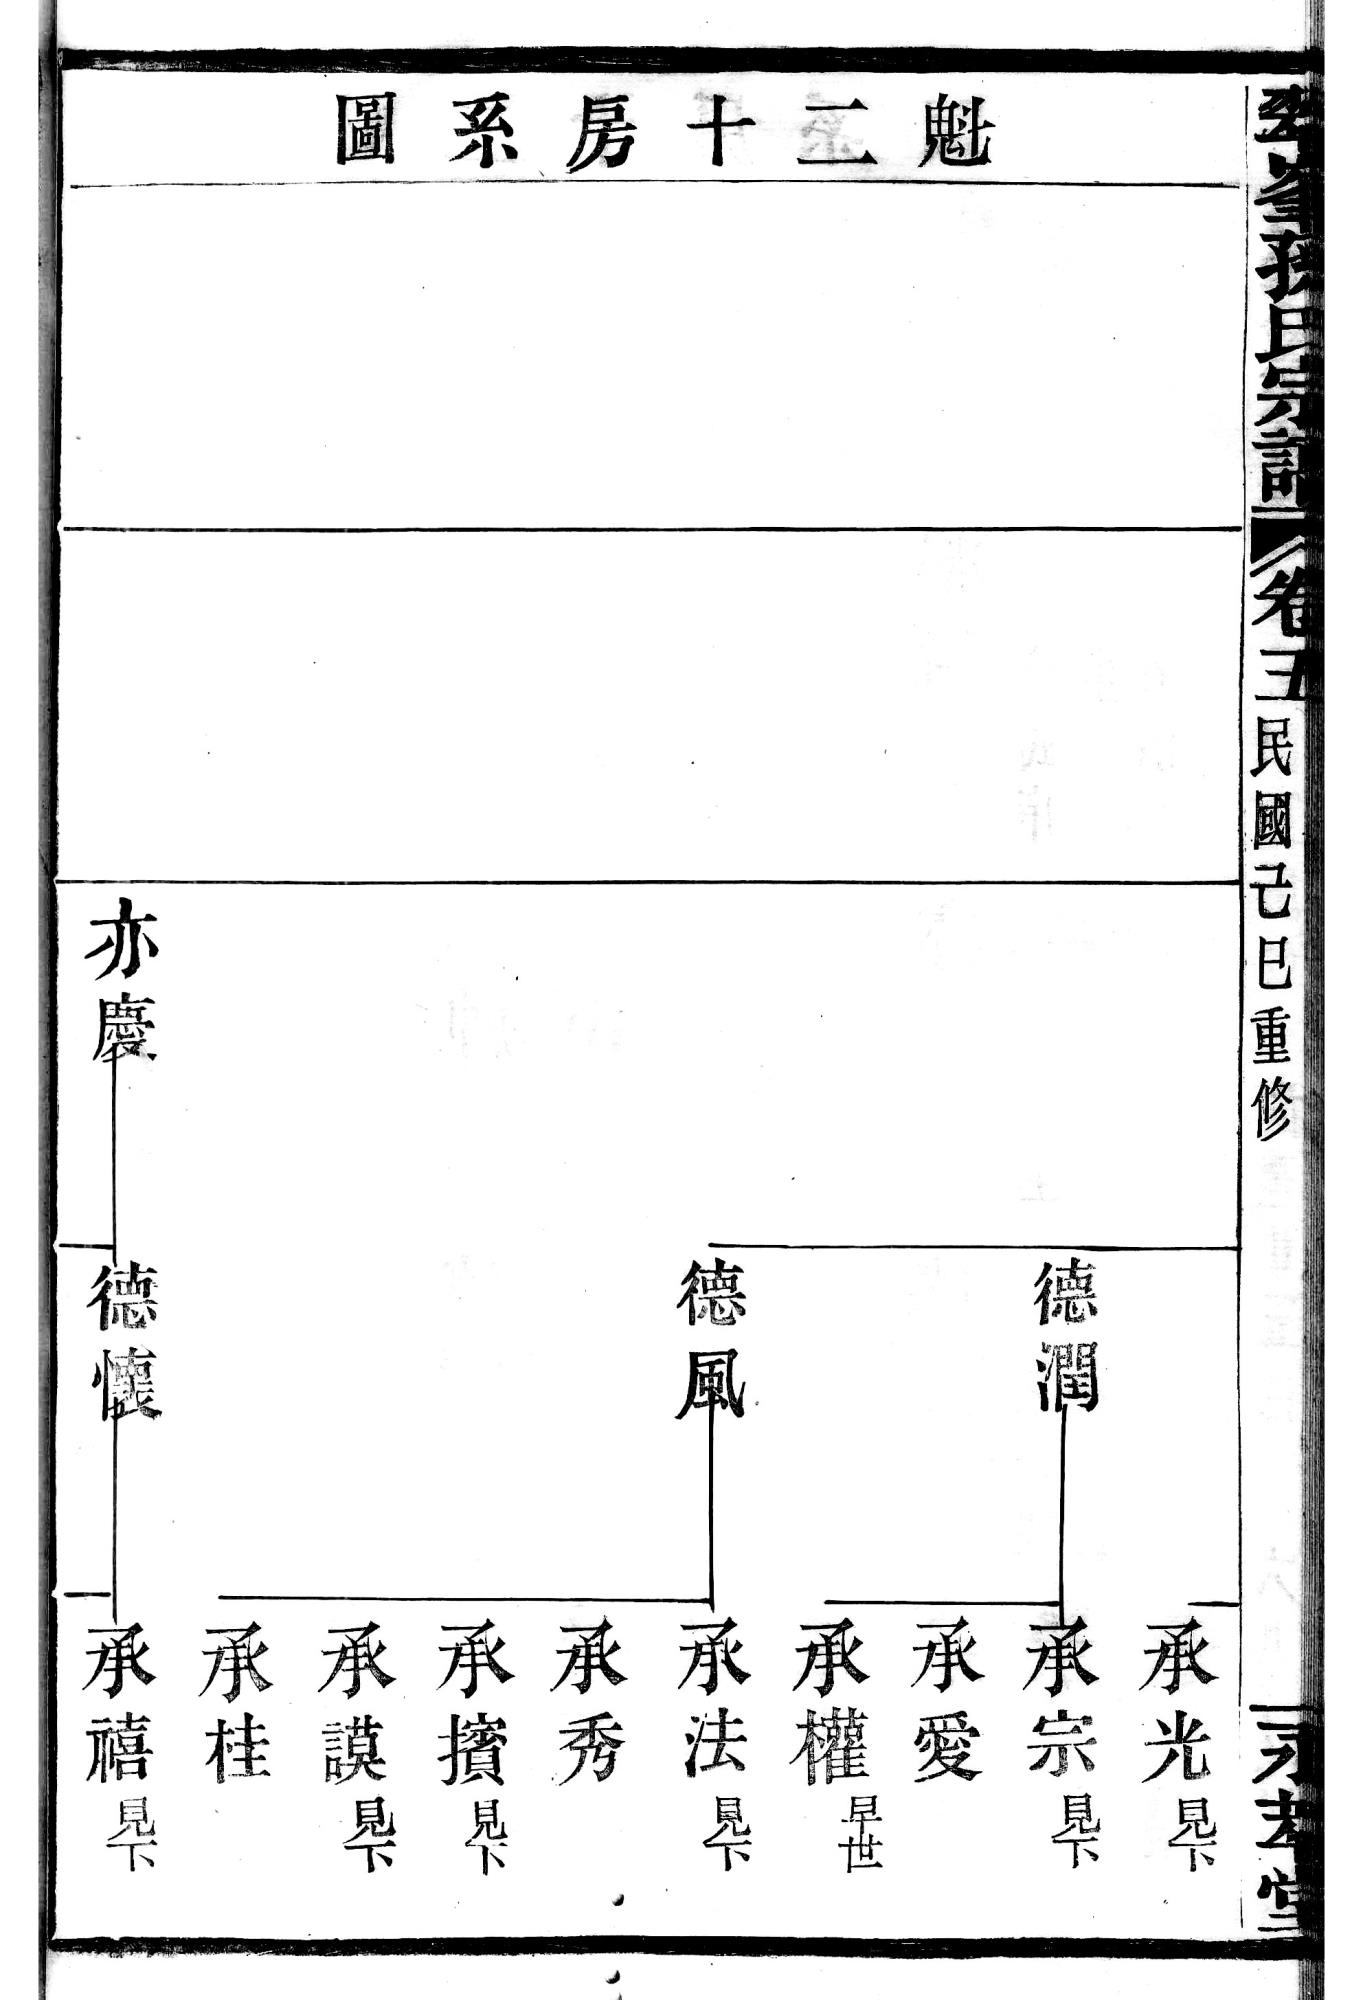 翠峯孫氏宗譜
卷五
民國己巳重修
永孝堂
魁二十房系圖
亦慶
德潤
德風
德懷
承光 見下
承宗 見下
承愛
承權 早世
承法 見下
承秀
承擯 見下
承謨 見下
承桂
承禧 見下